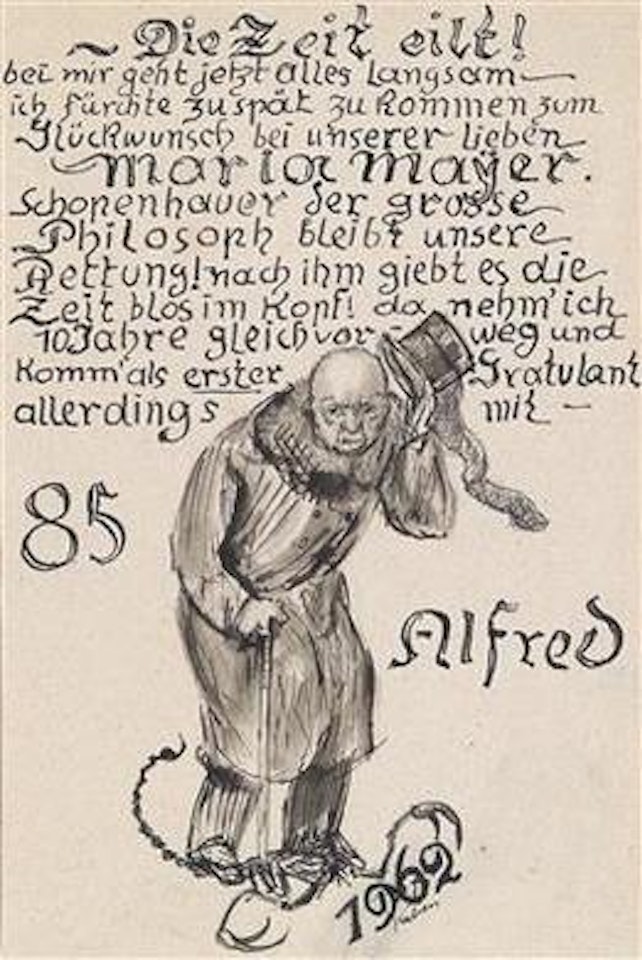 ~ Die Zeit eilt!
bei mir geht jetzt alles langsam —
ich fürchte zu spät zu kommen zum
Glückwunsch bei unserer lieben
Maria Mayer.
Schopenhauer der grosse
Philosoph bleibt unsere
Rettung! nach ihm giebt es die
Zeit blos im Kopf! da nehm' ich
10 Jahre gleich vor - weg und
Komm' als erster Gratulant
allerdings mit —
85
Alfred
1962
Kubin